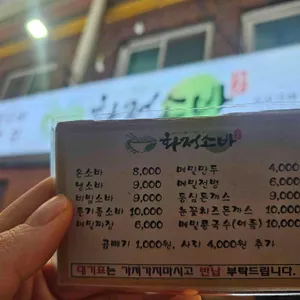 화정소바
화정소바
온소바 8,000
냉소바 9,000
비빔소바 9,000
들기름소바 10,000
메밀파전 6,000
메밀만두 4,000
메밀전병 6,000
등심돈까스 9,000
눈꽃치즈돈까스 10,000
메밀콩국수(여름) 10,000
곱빼기 1,000원, 사리 4,000원 추가
대기표는 가져가지마시고 반납 부탁드립니다.